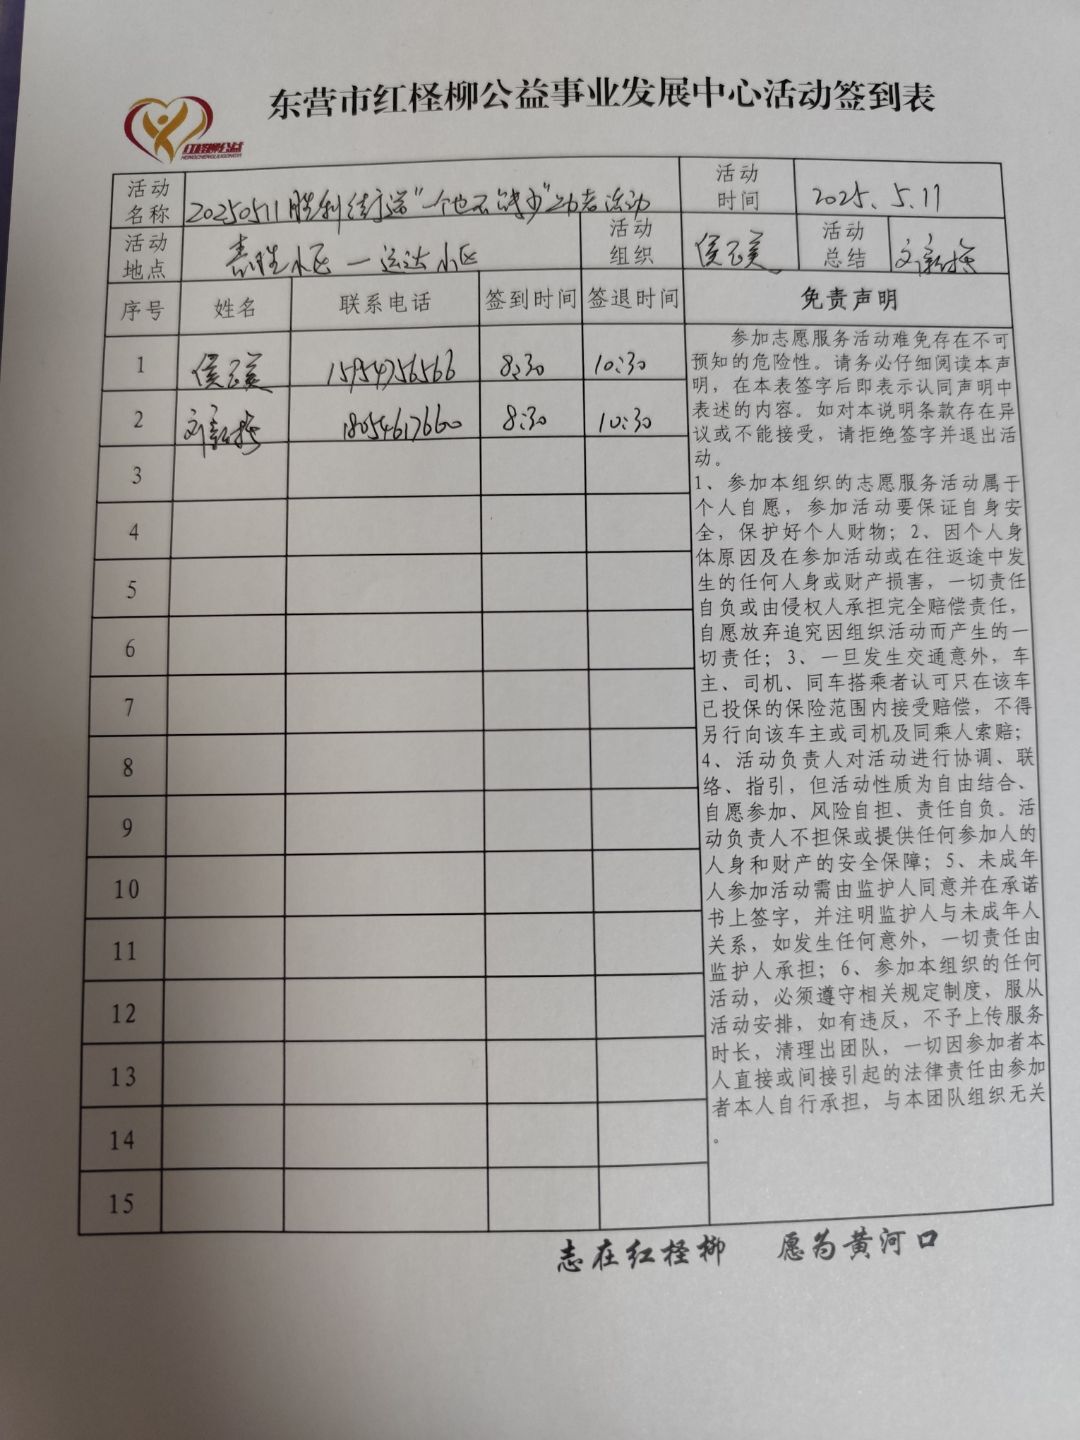 东营市红柽柳公益事业发展中心活动签到表
红柽柳公益
HONGCHENGLIUGONGYI
活动名称 20250511胜利街道"一个也不能少"助老活动 活动时间 2025.5.11
活动地点 小区一运达小区 活动组织 侯 美 活动总结 刘新梅
序号 姓名 联系电话 签到时间 签退时间 免责声明
1 侯 美 15954756566 8:30 10:30
2 刘新梅 18054617660 8:30 10:30
3
4
5
6
7
8
9
10
11
12
13
14
15
参加志愿服务活动难免存在不可
预知的危险性。请务必仔细阅读本声
明，在本表签字后即表示认同声明中
表述的内容。如对本说明条款存在异
议或不能接受，请拒绝签字并退出活
动。
1、参加本组织的志愿服务活动属于
个人自愿，参加活动要保证自身安
全，保护好个人财物；2、因个人身
体原因及在参加活动或在往返途中发
生的任何人身或财产损害，一切责任
自负或由侵权人承担完全赔偿责任，
自愿放弃追究因组织活动而产生的一
切责任；3、一旦发生交通意外，车
主、司机、同车搭乘者认可只在该车
已投保的保险范围内接受赔偿，不得
另行向该车主或司机及同乘人索赔；
4、活动负责人对活动进行协调、联
络、指引，但活动性质为自由结合、
自愿参加、风险自担、责任自负。活
动负责人不担保或提供任何参加人的
人身和财产的安全保障；5、未成年
人参加活动需由监护人同意并在承诺
书上签字，并注明监护人与未成年人
关系，如发生任何意外，一切责任由
监护人承担；6、参加本组织的任何
活动，必须遵守相关规定制度，服从
活动安排，如有违反，不予上传服务
时长，清理出团队，一切因参加者本
人直接或间接引起的法律责任由参加
者本人自行承担，与本团队组织无关
。
志在红柽柳 愿为黄河口